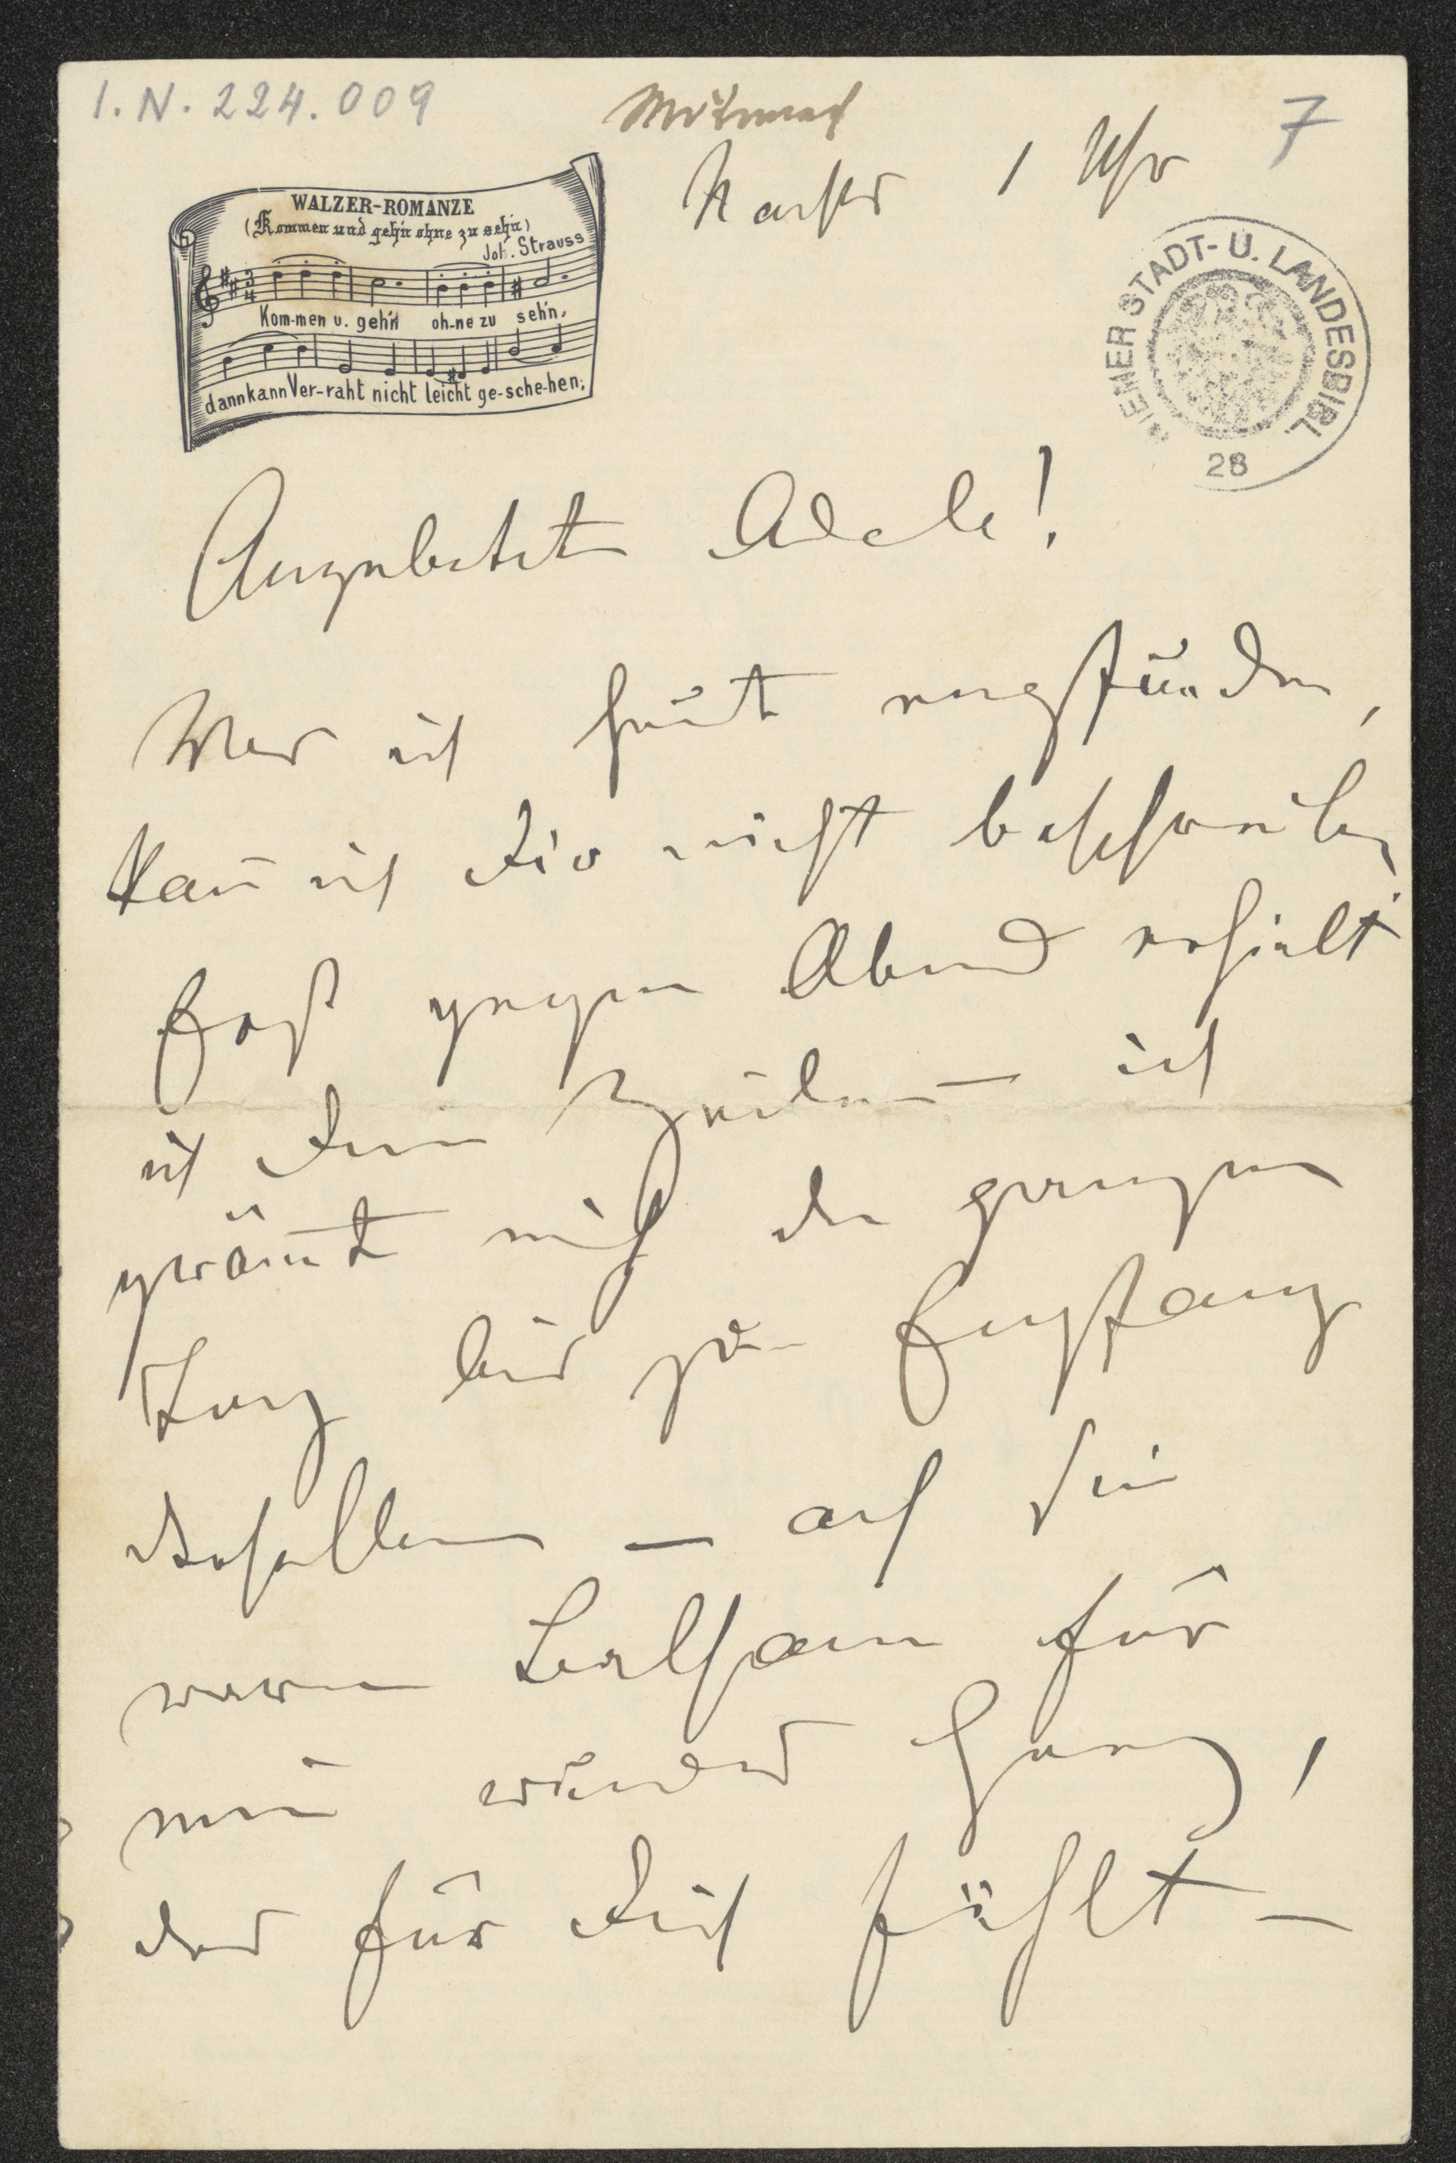 I.N. 224.009
Mittwoch
7
Nachts 1 Uhr
WALZER-ROMANZE
(Kommen und geh'n ohne zu seh'n)
Joh. Strauss
Kom-men u. geh'n oh-ne zu seh'n,
dann kann Ver-raht nicht leicht ge-sche-hen;
WIENER STADT- U. LANDESBIBL.
28
Angebetete Adele!
Was ich heute empfunden,
kann ich Dir nicht beschreiben
Erst gegen Abend erhielt
ich Deine Zeilen — ich
grämte mich den ganzen
Tag bis zum Empfang
derselben — ach sie
waren Balsam für
mein wundes Herz,
das für Dich fühlt —